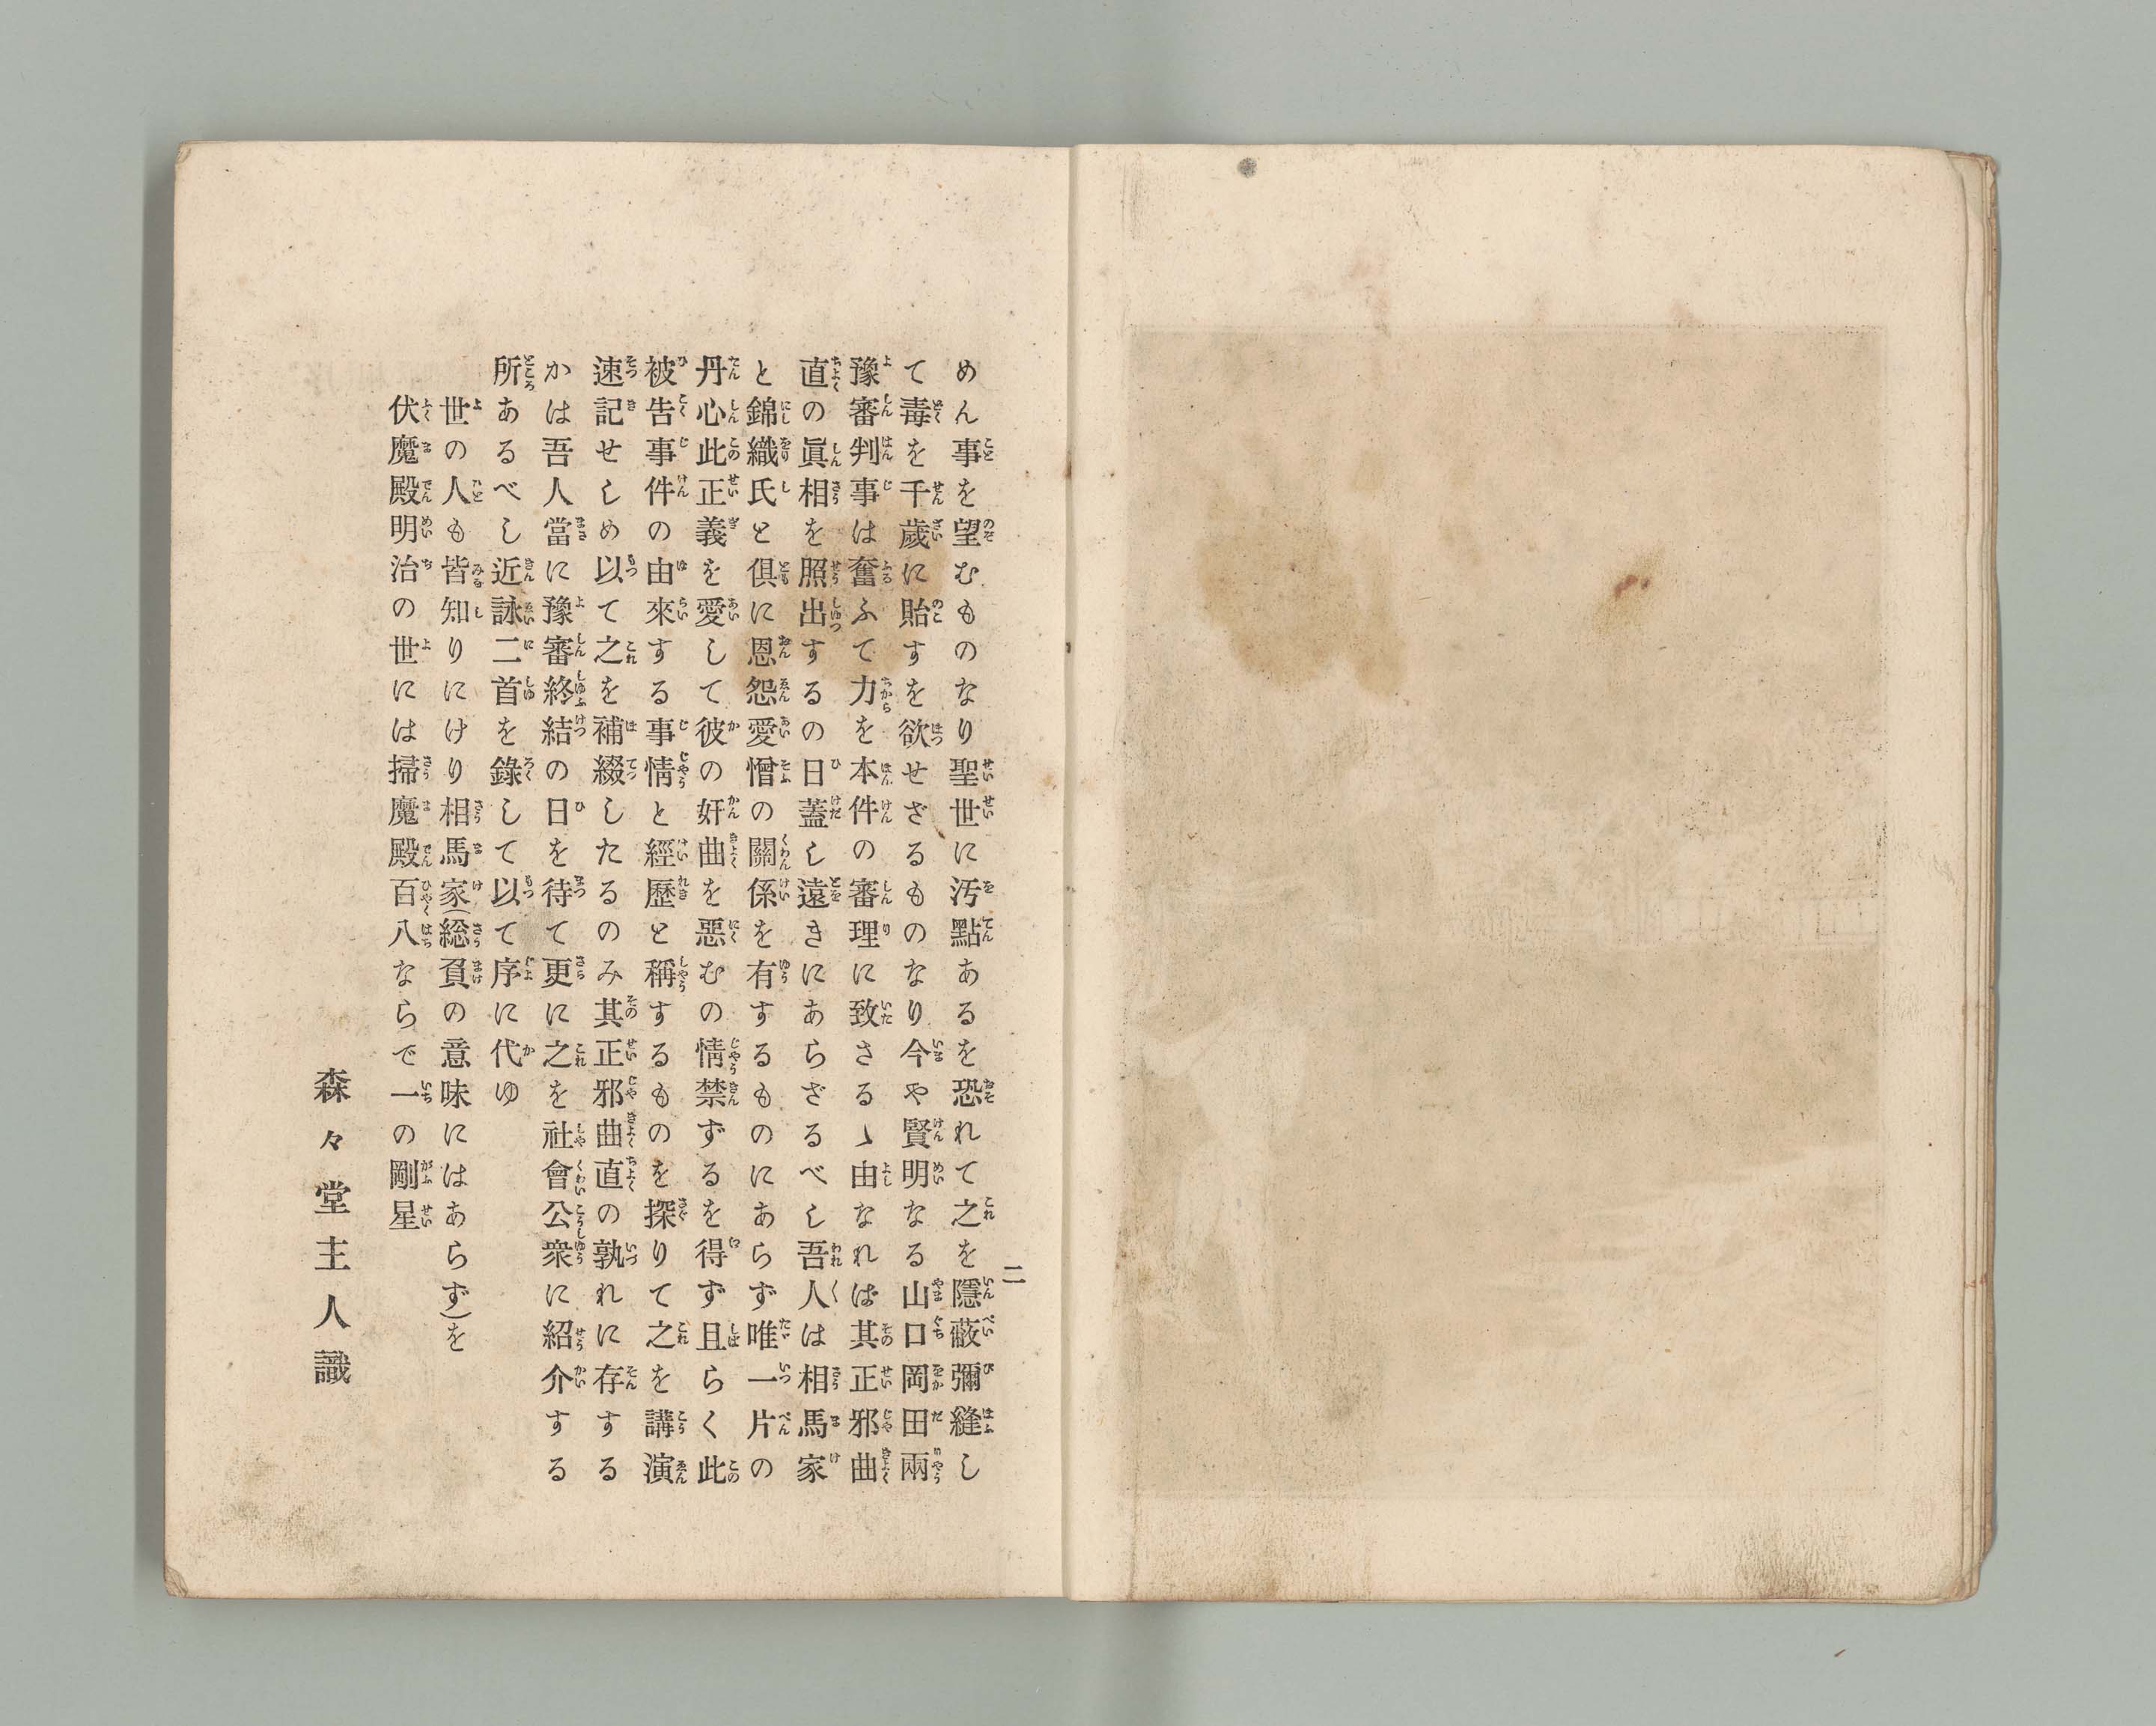 二
めん事を望むものなり聖世に汚點あるを恐れて之を隱蔽彌縫し
て毒を千歲に貽すを欲せざるものなり今や賢明なる山口岡田兩
豫審判事は奮ふて力を本件の審理に致さるゝ由なれば其正邪曲
直の眞相を照出するの日蓋し遠きにあらざるべし吾人は相馬家
と錦織氏と俱に恩怨愛憎の關係を有するものにあらず唯一片の
丹心此正義を愛して彼の奸曲を惡むの情禁ずるを得ず且らく此
被告事件の由來する事情と經歷と稱するものを探りて之を講演
速記せしめ以て之を補綴したるのみ其正邪曲直の孰れに存する
かは吾人當に豫審終結の日を待て更に之を社會公衆に紹介する
所あるべし近詠二首を錄して以て序に代ゆ
世の人も皆知りにけり相馬家(総負の意味にはあらず)を
伏魔殿明治の世には掃魔殿百八ならで一の剛星
森々堂主人識